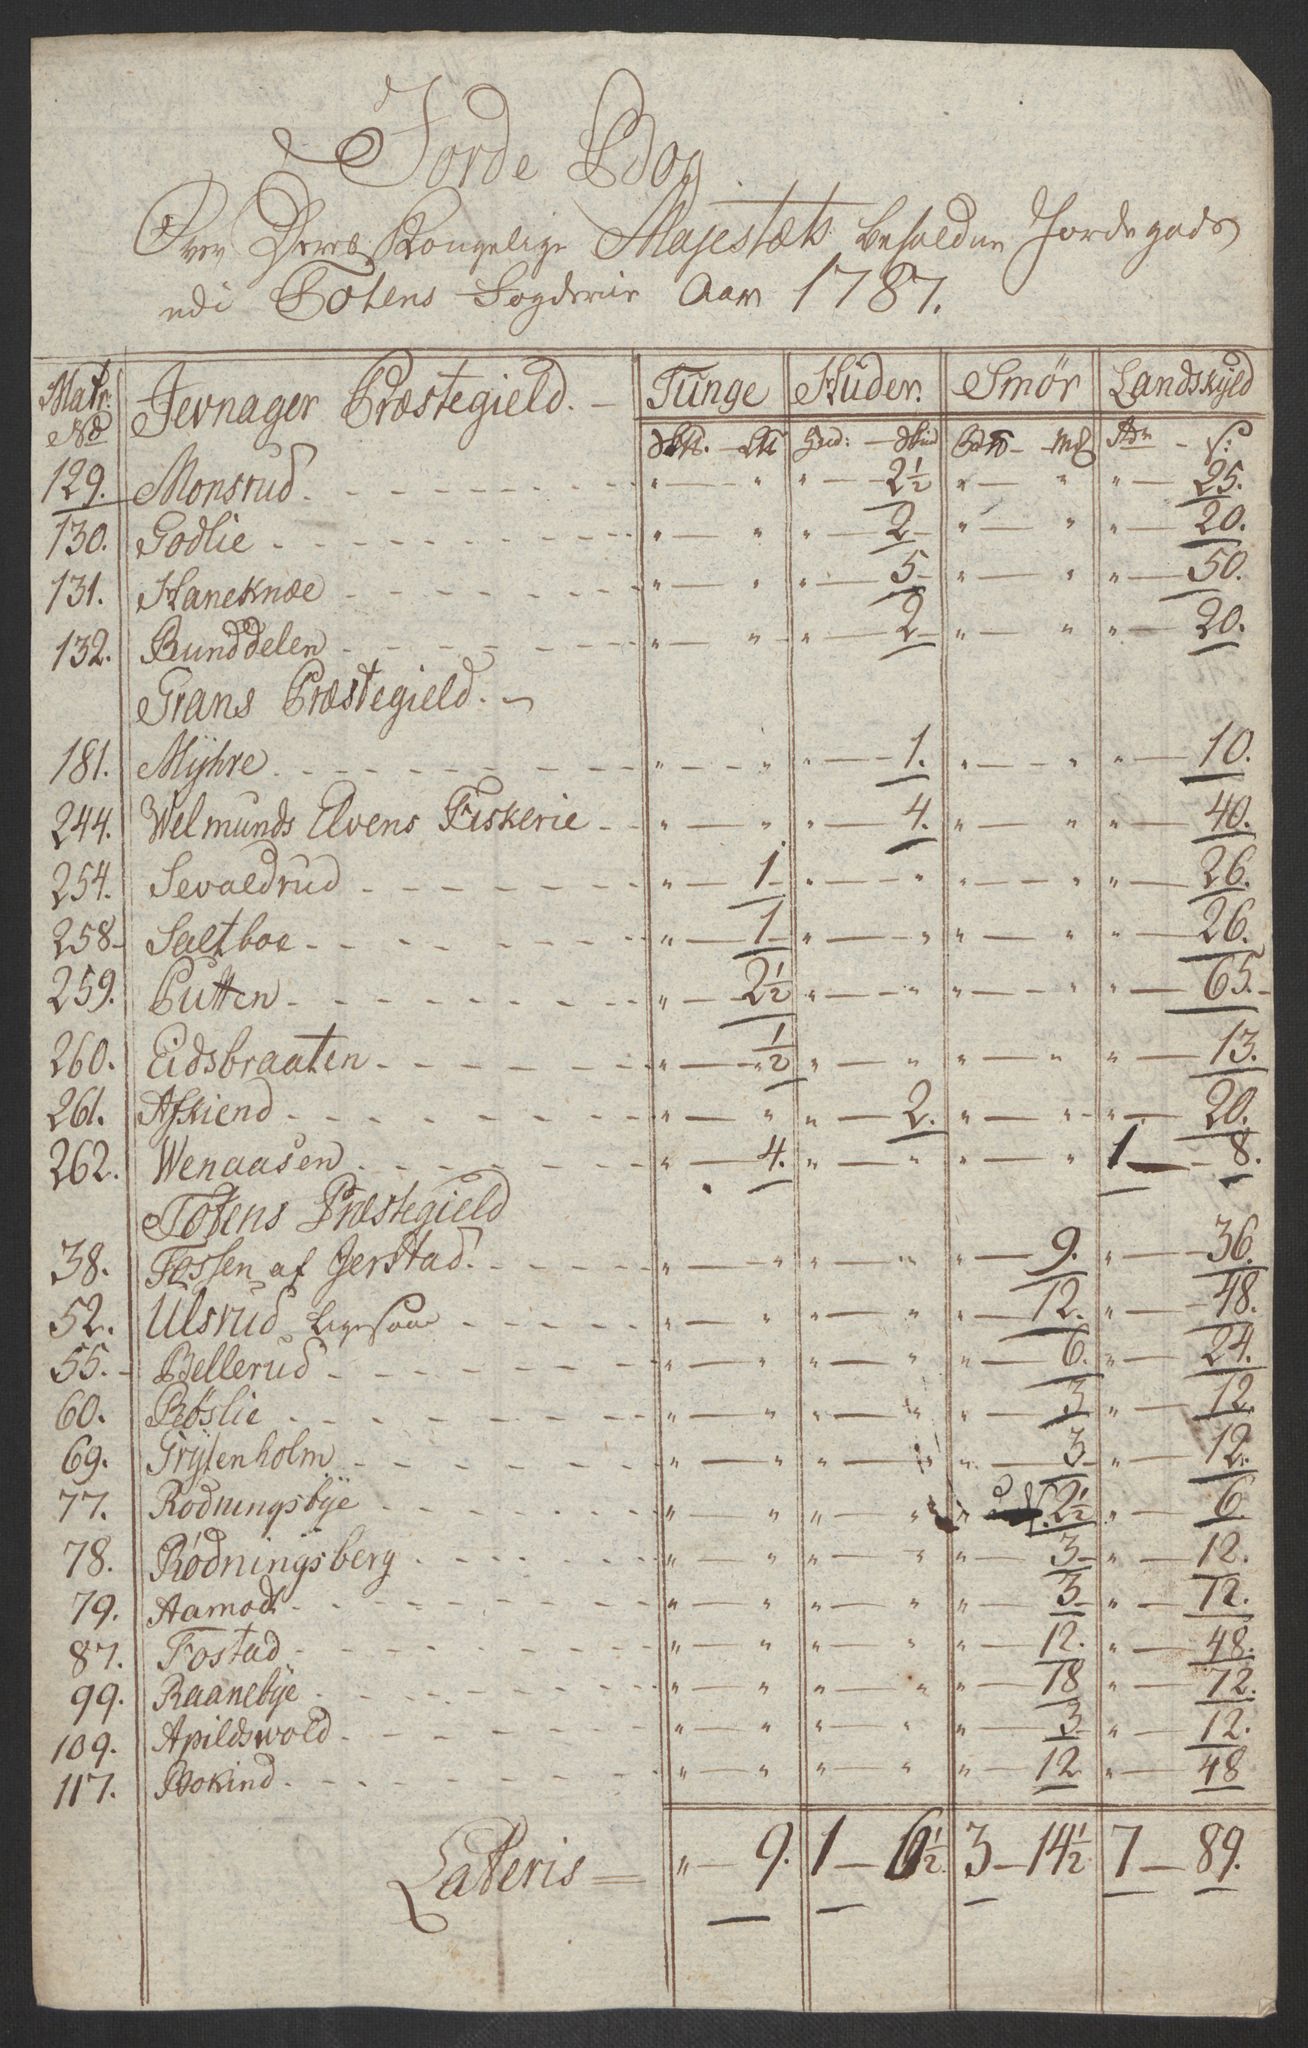 Jorde Bog
Over Deres Kongelige Majestæts beholdne Jordegods
udi Totens Fogderie Aar 1787.
Matr: No Jevnager Præstegield. Tunge Huder. Smør Landskyld
Hud: Skind Rdr S:
129. Monsrud. " " " 2½ " " " 25.
130. Godlie " " " 2 " " " 20.
131. Haneknæe " " " 5 " " " 50.
132. Bunddelen " " " 2 " " " 20.
Grans Præstegield.
181. Mÿhre " " " 1. " " " 10.
244. Welmunds Elvens Fiskerie " " " 4. " " " 40.
254. Sevaldrud " 1 " " " " " 26.
258 Saltboe " 1 " " " " " 26.
259. Putten " 2½ " " " " " 65.
260. Eidsbraaten " ½ " " " " " 13.
261. Askiend " " " 2. " " " 20.
262. Wenaasen " 4. " " " " 1 8.
Totens Præstegield
38. Fossen af Jerstad. " " " " " 9. " 36.
52. Ulsrud Ligesaa " " " " " 12. " 48.
55. Bellerud " " " " " 6. " 24.
60. Røslie " " " " " 3 " 12.
69. Grÿtenholm " " " " " 3 " 12.
77. Rødningsbÿe " " " " " 2½ " 6.
78. Rødningsberg " " " " " 3 " 12.
79. Aamodt " " " " " 3 " 12.
87. Fostad " " " " " 12. " 48.
99. Raanebÿe " " " " " 18 " 72.
109. Apildswold " " " " " 3 " 12.
117. Hokind " " " " " 12 " 48
Lateris " 9. 1 6½ 3 14½ 7 89.